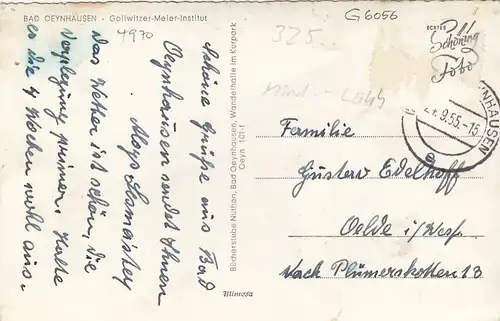 BAD OEYNHAUSEN - Gollwitzer-Meier-Institut
4970
G 6056
325...
ECHTES
Schöning
Foto
Schöne Grüße aus Bad
Oeynhausen sendet Ihnen
Aloys
Das Wetter ist schön, die
Verpflegung prima. Halte
es die 4 Wochen wohl aus.
Bücherstube Nüthen, Bad Oeynhausen, Wandelhalle im Kurpark
Oeyn 101 f
Mimosa
NHAUSEN
9.55.-15
Familie
Gustav Edelhoff
Oelde i/Westf.
Nach Plümerskotten 13